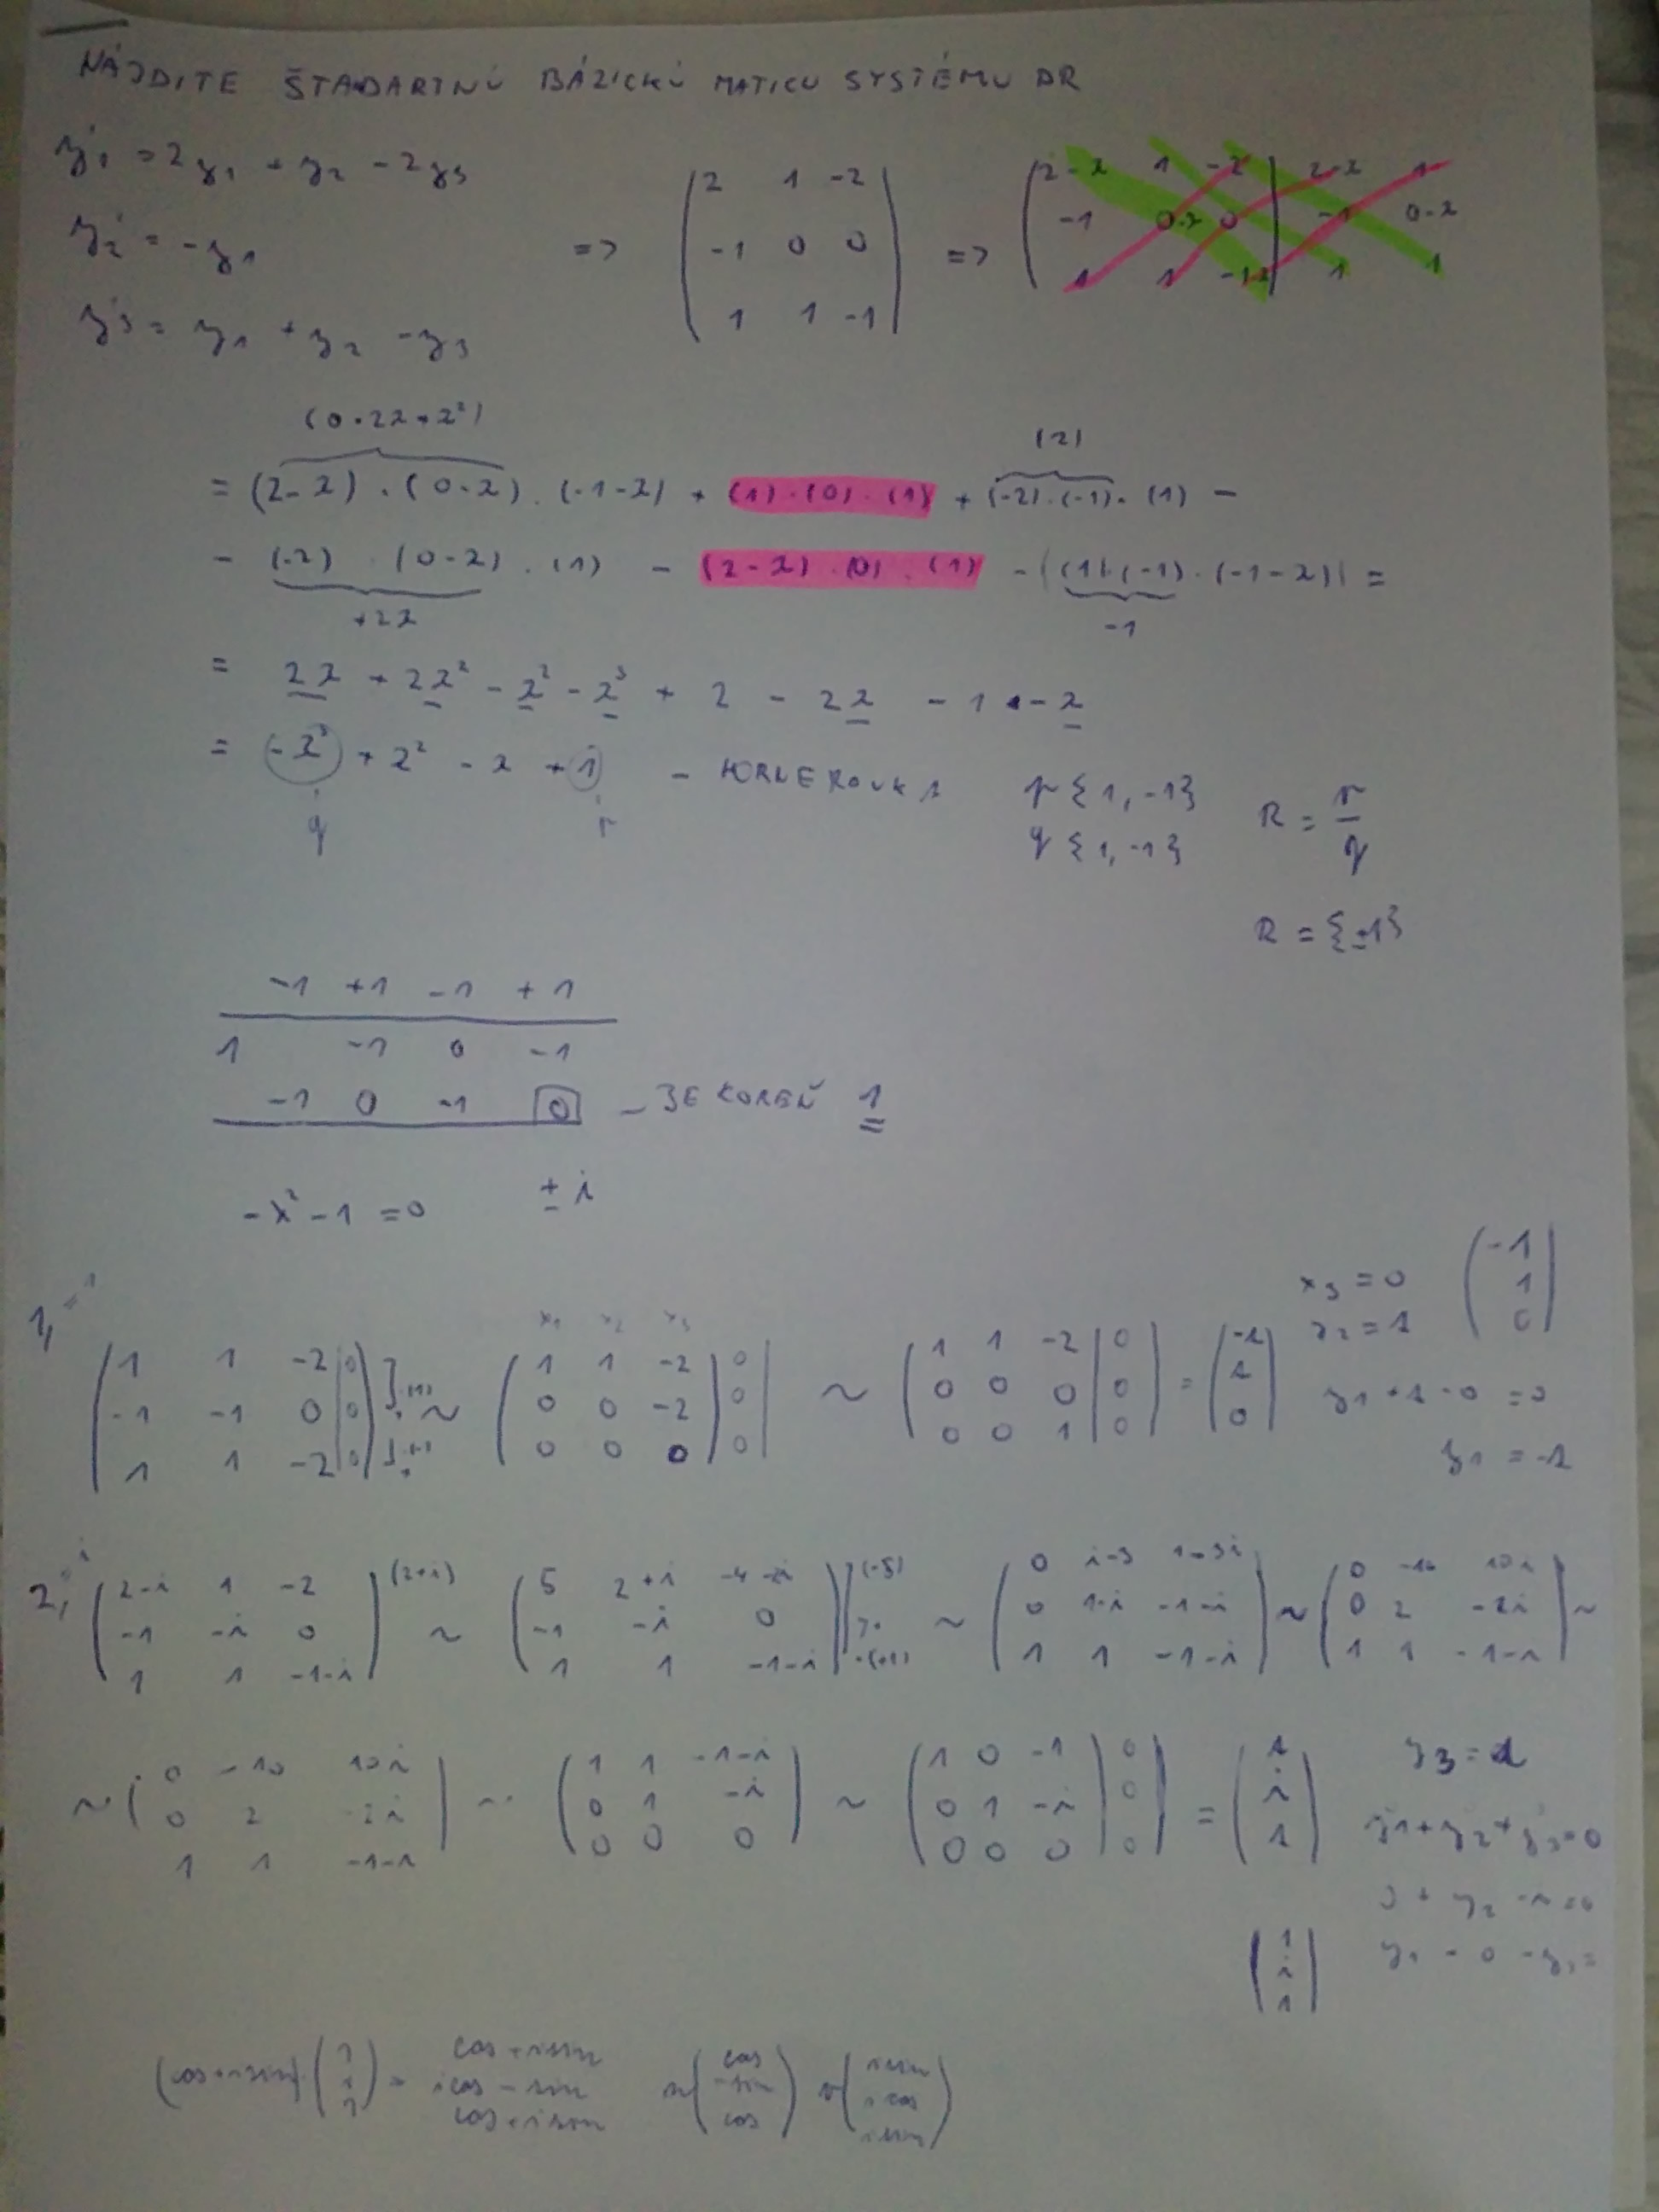 NÁJDITE ŠTADARTNÚ BÁZICKÚ MATICU SYSTÉMU DR
y₁' = 2y₁ + y₂ - 2y₃
y₂' = -y₁
y₃' = y₁ + y₂ - y₃
=> ( 2 1 -2 )
( -1 0 0 )
( 1 1 -1 )
=> ( 2-λ 1 -2 | 2-λ 1
-1 0-λ 0 | -1 0-λ
1 1 -1-λ | 1 1
= (2-λ) · (0-λ) · (-1-λ) + (1) · (0) · (1) + (-2) · (-1) · (1) -
(2)
- (-2) · (0-λ) · (1) - (2-λ) · (0) · (1) - ((1) · (-1) · (-1-λ)) =
+2λ
-1
= 2λ + 2λ² - λ² - λ³ + 2 - 2λ - 1 - λ
= -λ³ + λ² - λ + 1 - HORNEROVKA
q
r
p {1, -1}
q {1, -1}
R = r/q
R = {±1}
-1 +1 -1 +1
1 -1 0 -1
-1 0 -1 0 - JE KOREŇ 1
-λ² - 1 = 0 ± i
1,
( 1 1 -2 | 0 )
( -1 -1 0 | 0 )
( 1 1 -2 | 0 )
~
x₁ x₂ x₃
( 1 1 -2 ) 0
( 0 0 -2 ) 0
( 0 0 0 ) 0
~ ( 1 1 -2 | 0 )
( 0 0 0 | 0 )
( 0 0 1 | 0 )
= ( -1 )
( 1 )
( 0 )
x₃ = 0
y₂ = 1
y₁ + 1 - 0 = 0
y₁ = -1
( -1 )
( 1 )
( 0 )
2, i
( 2-i 1 -2 ) (2+i)
( -1 -i 0 )
( 1 1 -1-i )
~ ( 5 2+i -4-2i ) (-5)
( -1 -i 0 )
( 1 1 -1-i )
~ ( 0 i-3 1+3i )
( 0 1-i -1-i )
( 1 1 -1-i )
~ ( 0 -10 10i )
( 0 2 -2i )
( 1 1 -1-i ) ~
~ ( 0 -10 10i )
( 0 2 -2i )
( 1 1 -1-i )
~ ( 1 1 -1-i )
( 0 1 -i )
( 0 0 0 )
~ ( 1 0 -1 | 0 )
( 0 1 -i | 0 )
( 0 0 0 | 0 )
= ( 1 )
( i )
( 1 )
y₃ = 1
y₁ + y₂ + y₃ = 0
0 + y₂ - i = 0
y₁ - 0 - y₃ =
( 1 )
( i )
( 1 )
(cos + i sin) · ( 1 )
( i )
( 1 )
= cos + i sin
i cos - sin
cos + i sin
( cos )
( -sin )
( cos )
( i sin )
( i cos )
( i sin )